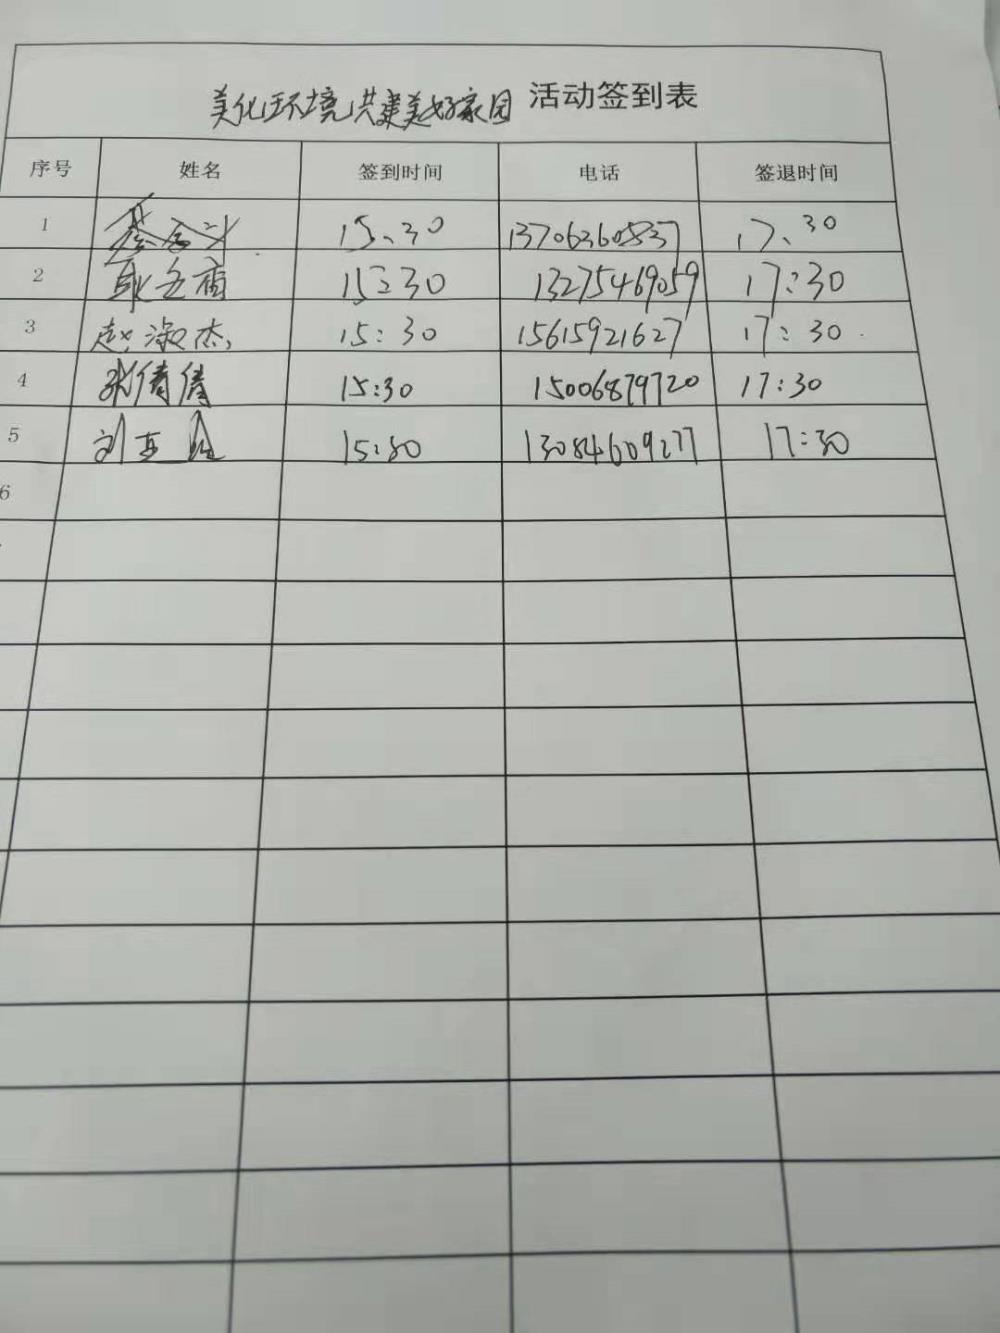 美化环境共建美好家园 活动签到表
序号 姓名 签到时间 电话 签退时间
1 15、30 13706360537 17、30
2 15:30 13275469059 17:30
3 赵淑杰 15:30 15615921627 17:30
4 张倩倩 15:30 15006879720 17:30
5 刘 15:30 13084609277 17:30
6